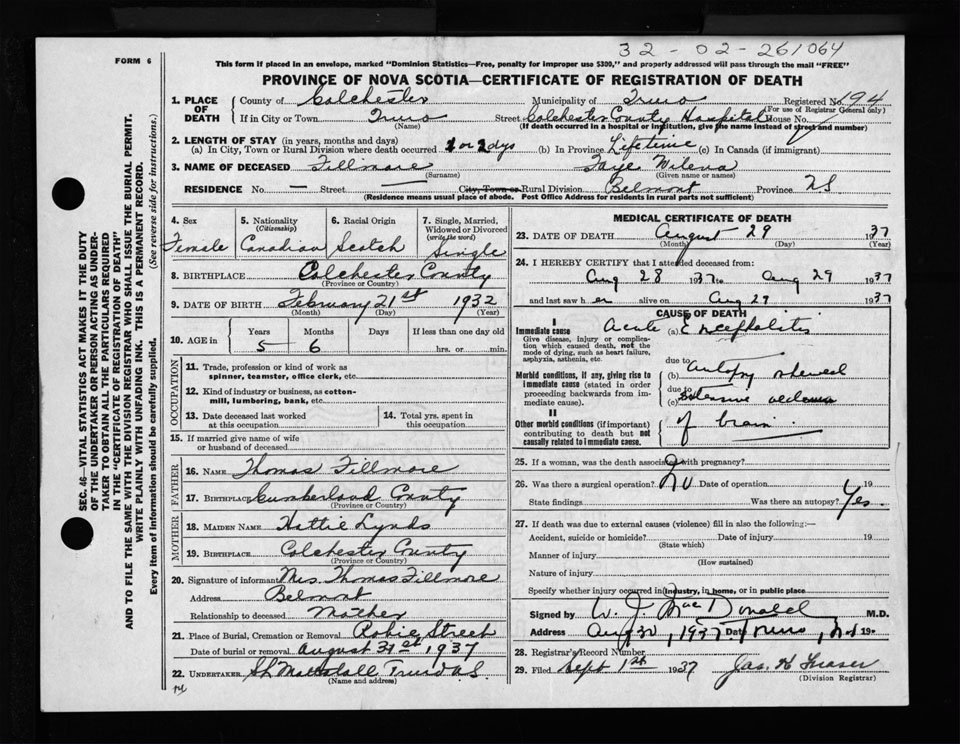 32 - 02 - 261064
FORM 6
This form if placed in an envelope, marked "Dominion Statistics—Free, penalty for improper use $300," and properly addressed will pass through the mail "FREE"
PROVINCE OF NOVA SCOTIA—CERTIFICATE OF REGISTRATION OF DEATH
1. PLACE OF DEATH County of Colchester Municipality of Truro Registered No. 194
(For use of Registrar General only)
If in City or Town Truro Street Colchester County Hospital House No.
(Name) (If death occurred in a hospital or institution, give the name instead of street and number)
2. LENGTH OF STAY (in years, months and days)
(a) In City, Town or Rural Division where death occurred 1 or 2 dys (b) In Province Lifetime (c) In Canada (if immigrant)
3. NAME OF DECEASED Fillmore Faye Milena
(Surname) (Given name or names)
RESIDENCE No. — Street — City, Town or Rural Division Belmont Province NS
(Residence means usual place of abode. Post Office Address for residents in rural parts not sufficient)
4. Sex 5. Nationality (Citizenship) 6. Racial Origin 7. Single, Married, Widowed or Divorced (write the word)
Female Canadian Scotch Single
8. BIRTHPLACE Colchester County
(Province or Country)
9. DATE OF BIRTH February 21st 1932
(Month) (Day) (Year)
10. AGE in Years Months Days If less than one day old
5 6 hrs. or min.
OCCUPATION
11. Trade, profession or kind of work as spinner, teamster, office clerk, etc.
12. Kind of industry or business, as cotton-mill, lumbering, bank, etc.
13. Date deceased last worked at this occupation 14. Total yrs. spent in this occupation
15. If married give name of wife or husband of deceased
FATHER
16. NAME Thomas Fillmore
17. BIRTHPLACE Cumberland County
(Province or Country)
MOTHER
18. MAIDEN NAME Hattie Lynds
19. BIRTHPLACE Colchester County
(Province or Country)
20. Signature of informant Mrs. Thomas Fillmore
Address Belmont
Relationship to deceased Mother
21. Place of Burial, Cremation or Removal Robie Street
Date of burial or removal August 31st 1937
22. UNDERTAKER Truro N.S.
(Name and address)
MEDICAL CERTIFICATE OF DEATH
23. DATE OF DEATH August 29 1937
(Month) (Day) (Year)
24. I HEREBY CERTIFY that I attended deceased from:
Aug 28 1937 to Aug 29 1937
and last saw her alive on Aug 29 1937
CAUSE OF DEATH
I
Immediate cause (a) Acute Encephalitis
Give disease, injury or complication which caused death, not the mode of dying, such as heart failure, asphyxia, asthenia, etc.
due to
Morbid conditions, if any, giving rise to immediate cause (stated in order proceeding backwards from immediate cause). (b) Autopsy showed
due to
(c) Extensive oedema
II
Other morbid conditions (if important) contributing to death but not causally related to immediate cause. of brain.
25. If a woman, was the death associated with pregnancy?
26. Was there a surgical operation? No Date of operation 19
State findings Was there an autopsy? Yes.
27. If death was due to external causes (violence) fill in also the following:—
Accident, suicide or homicide? Date of injury 19
(State which)
Manner of injury
(How sustained)
Nature of injury
Specify whether injury occurred in industry, in home, or in public place
Signed by W. J. MacDonald M.D.
Address Aug 30, 1937 Date Truro, N.S. 19
28. Registrar's Record Number
29. Filed Sept 1st 1937 Jas. H Fraser
(Division Registrar)
SEC. 46—VITAL STATISTICS ACT MAKES IT THE DUTY
OF THE UNDERTAKER OR PERSON ACTING AS UNDER-
TAKER TO OBTAIN ALL THE PARTICULARS REQUIRED
IN THE "CERTIFICATE OF REGISTRATION OF DEATH"
AND TO FILE THE SAME WITH THE DIVISION REGISTRAR WHO SHALL ISSUE THE BURIAL PERMIT.
WRITE PLAINLY WITH UNFADING INK. THIS IS A PERMANENT RECORD.
Every item of information should be carefully supplied. (See reverse side for instructions.)